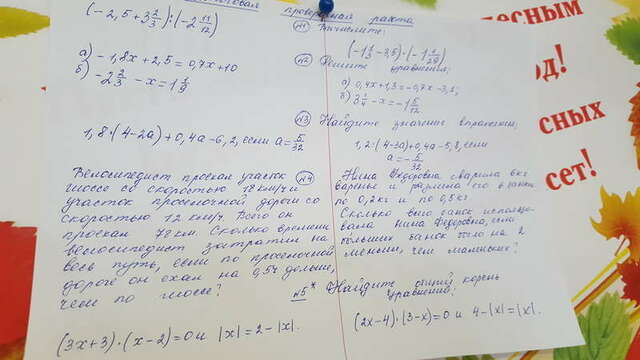 проверочная работа
(-2,5+3 2/3):(-2 11/12)
а) -1,8x+2,5=0,7x+10
б) -2 2/3 - x = 1 1/9
1,8·(4-2a)+0,4a-6,2, если a=5/32
Велосипедист проехал участок
шоссе со скоростью 18 км/ч и
участок проселочной дороги со
скоростью 12 км/ч. Всего он
проехал 78 км. Сколько времени
велосипедист затратил на
весь путь, если по проселочной
дороге он ехал на 0,5ч дольше,
чем по шоссе?
(3x+3)·(x-2)=0 и |x|=2-|x|.
№1 Вычислите:
№2 Решите уравнения:
а) 0,4x+1,3=-0,7x-3,1;
№3 Найдите значение выражения;
1,2·(4-3a)+0,4a-5,8, если
a=-5/32
№4 Нина Федоровна сварила 6кг
варенья и разлила его в банки
по 0,2кг и по 0,5кг
Сколько всего банок использо-
вала Нина Федоровна, если
больших банок было на 2
меньше, чем маленьких?
№5* Найдите общий корень
уравнений:
(2x-4)·(3-x)=0 и 4-|x|=|x|.
есным
од!
сных
сет!